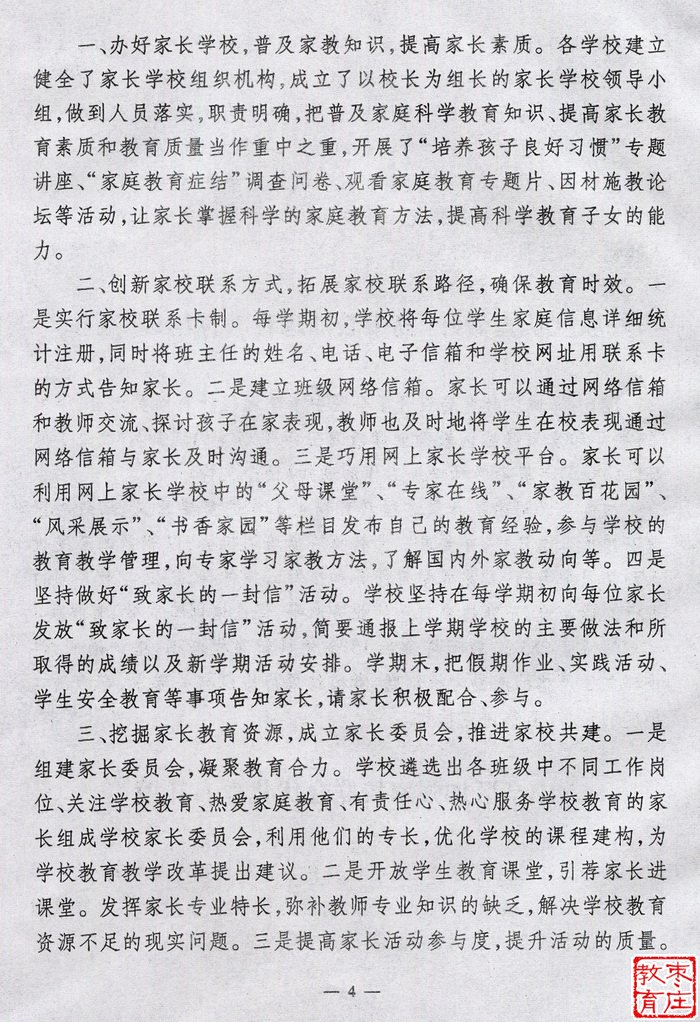 一、办好家长学校,普及家教知识,提高家长素质。各学校建立
健全了家长学校组织机构,成立了以校长为组长的家长学校领导小
组,做到人员落实,职责明确,把普及家庭科学教育知识、提高家长教
育素质和教育质量当作重中之重,开展了“培养孩子良好习惯”专题
讲座、“家庭教育症结”调查问卷、观看家庭教育专题片、因材施教论
坛等活动,让家长掌握科学的家庭教育方法,提高科学教育子女的能
力。
二、创新家校联系方式,拓展家校联系路径,确保教育时效。一
是实行家校联系卡制。每学期初,学校将每位学生家庭信息详细统
计注册,同时将班主任的姓名、电话、电子信箱和学校网址用联系卡
的方式告知家长。二是建立班级网络信箱。家长可以通过网络信箱
和教师交流、探讨孩子在家表现,教师也及时地将学生在校表现通过
网络信箱与家长及时沟通。三是巧用网上家长学校平台。家长可以
利用网上家长学校中的“父母课堂”、“专家在线”、“家教百花园”、
“风采展示”、“书香家园”等栏目发布自己的教育经验,参与学校的
教育教学管理,向专家学习家教方法,了解国内外家教动向等。四是
坚持做好“致家长的一封信”活动。学校坚持在每学期初向每位家长
发放“致家长的一封信”活动,简要通报上学期学校的主要做法和所
取得的成绩以及新学期活动安排。学期末,把假期作业、实践活动、
学生安全教育等事项告知家长,请家长积极配合、参与。
三、挖掘家长教育资源,成立家长委员会,推进家校共建。一是
组建家长委员会,凝聚教育合力。学校遴选出各班级中不同工作岗
位、关注学校教育、热爱家庭教育、有责任心、热心服务学校教育的家
长组成学校家长委员会,利用他们的专长,优化学校的课程建构,为
学校教育教学改革提出建议。二是开放学生教育课堂,引荐家长进
课堂。发挥家长专业特长,弥补教师专业知识的缺乏,解决学校教育
资源不足的现实问题。三是提高家长活动参与度,提升活动的质量。
— 4 —
枣庄
教育